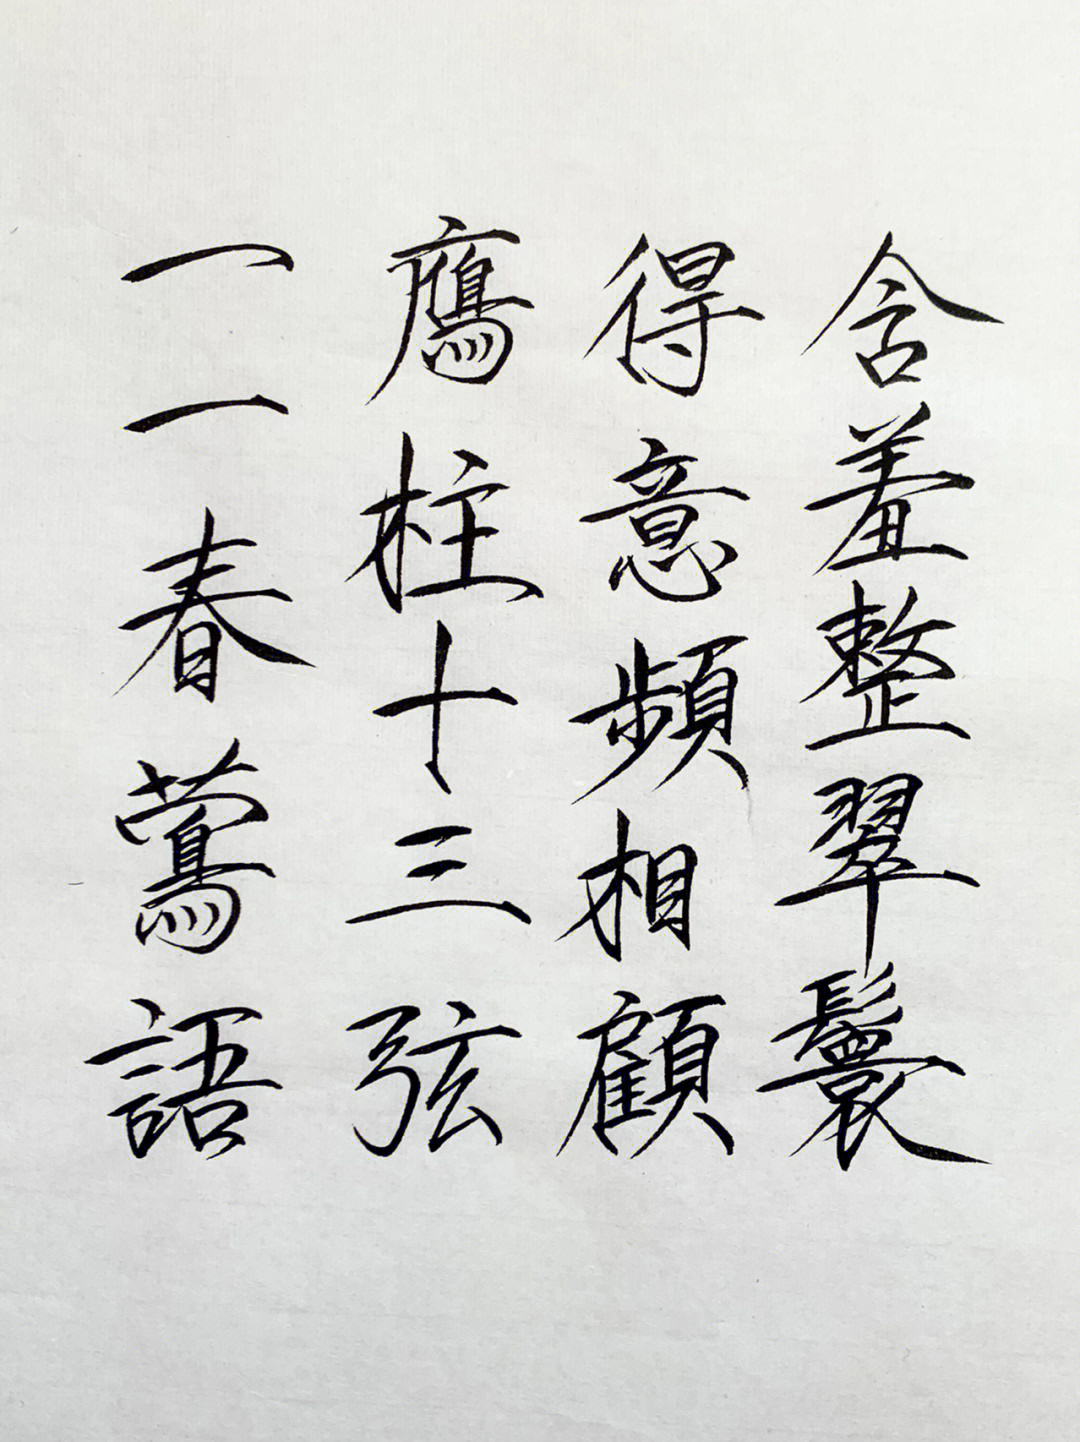 含羞整翠鬟
得意頻相顧
鴈柱十三弦
一一春鶯語